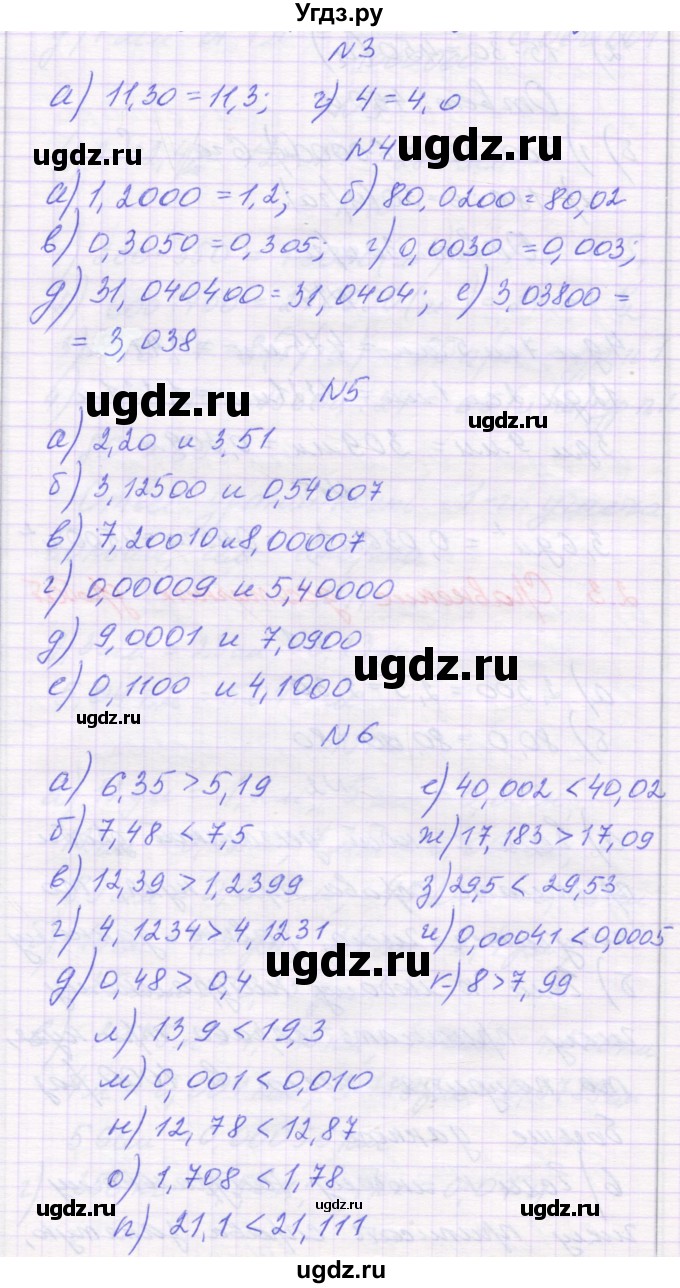 Угдз.ру
N3
а) 11,30 = 11,3; г) 4 = 4,0
ugdz.ru ugdz.ru
N4
а) 1,2000 = 1,2; б) 80,0200 = 80,02
в) 0,3050 = 0,305; г) 0,0030 = 0,003;
д) 31,040400 = 31,0404; е) 3,03800 =
= 3,038
ugdz.ru
N5
ugdz.ru
а) 2,20 и 3,51
б) 3,12500 и 0,54007
в) 7,20010 и 8,00007
г) 0,00009 и 5,40000
д) 9,0001 и 7,0900
ugdz.ru
е) 0,1100 и 4,1000
ugdz.ru
N6
а) 6,35 > 5,19 е) 40,002 < 40,02
б) 7,48 < 7,5 ж) 17,183 > 17,09
в) 12,39 > 1,2399 з) 29,5 < 29,53
г) 4,1234 > 4,1231 и) 0,00041 < 0,0005
ugdz.ru
д) 0,48 > 0,4 к) 8 > 7,99
л) 13,9 < 19,3
м) 0,001 < 0,010
н) 12,78 < 12,87
о) 1,708 < 1,78
ugdz.ru ugdz.ru ugdz.ru
п) 21,1 < 21,111
ugdz.ru